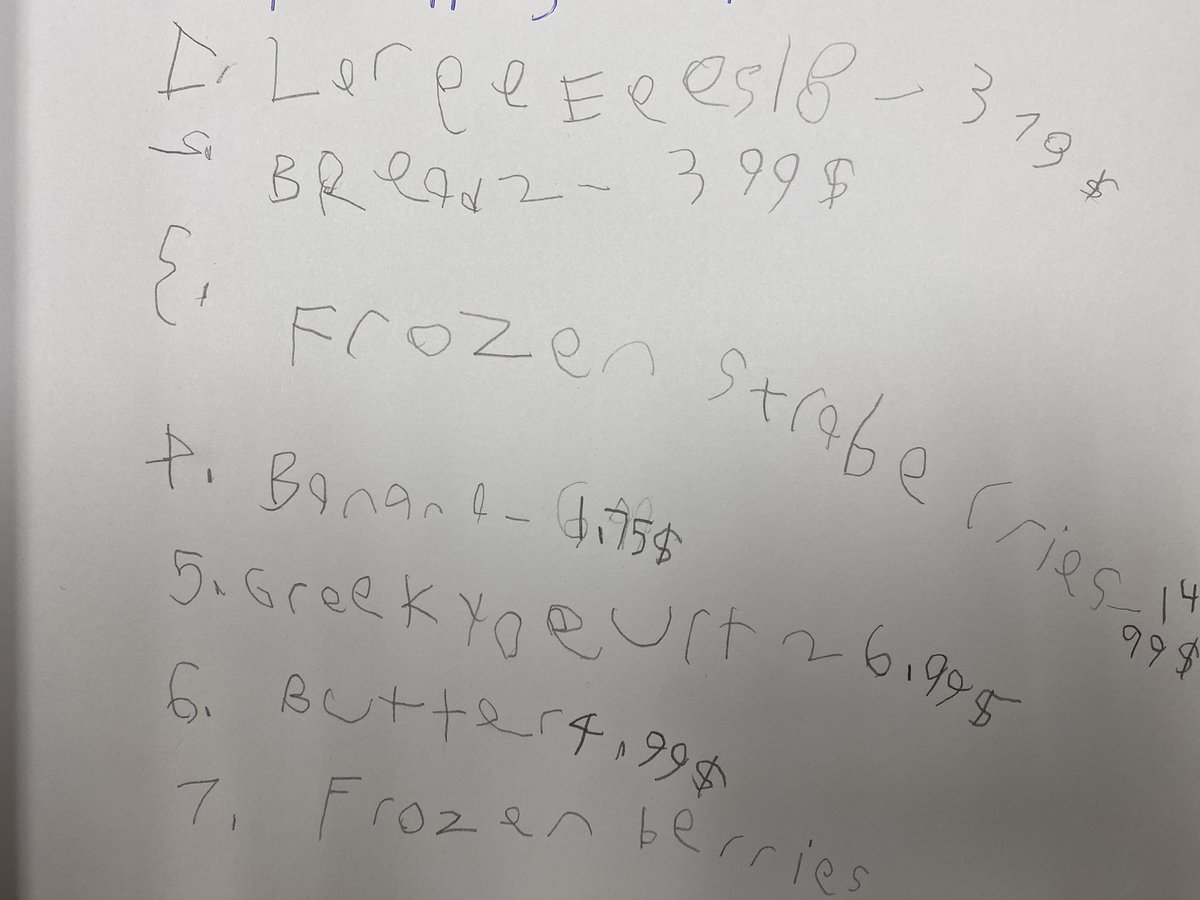 1. Lergee Eees18 - 3 79 $
BRead 2 - 3 99 $
Frozen straberries - 14 99 $
4. Banana - 1.75 $
5. Greek Yoeurt 2 6.99 $
6. Butter 4.99 $
7. Frozen berries